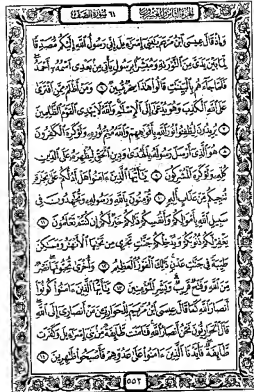 الجزء الثامن والعشرون
٦١ سورة الصف
وإذ قال عيسى ابن مريم يبني إسرءيل إني رسول الله إليكم مصدقا
لما بين يدي من التورىة ومبشرا برسول يأتي من بعدي اسمه أحمد
فلما جاءهم بالبينت قالوا هذا سحر مبين ٦ ومن أظلم ممن افترى
على الله الكذب وهو يدعى إلى الإسلم والله لا يهدي القوم الظلمين
٧ يريدون ليطفـٔوا نور الله بأفوههم والله متم نوره ولو كره الكفرون
٨ هو الذي أرسل رسوله بالهدى ودين الحق ليظهره على الدين
كله ولو كره المشركون ٩ يأيها الذين ءامنوا هل أدلكم على تجرة
تنجيكم من عذاب أليم ١٠ تؤمنون بالله ورسوله وتجهدون في
سبيل الله بأمولكم وأنفسكم ذلكم خير لكم إن كنتم تعلمون ١١
يغفر لكم ذنوبكم ويدخلكم جنت تجري من تحتها الأنهر ومسكن
طيبة في جنت عدن ذلك الفوز العظيم ١٢ وأخرى تحبونها نصر
من الله وفتح قريب وبشر المؤمنين ١٣ يأيها الذين ءامنوا كونوا
أنصار الله كما قال عيسى ابن مريم للحوارين من أنصاري إلى الله
قال الحواريون نحن أنصار الله فـٔامنت طائفة من بني إسرءيل وكفرت
طائفة فأيدنا الذين ءامنوا على عدوهم فأصبحوا ظهرين ١٤
٥٥٢